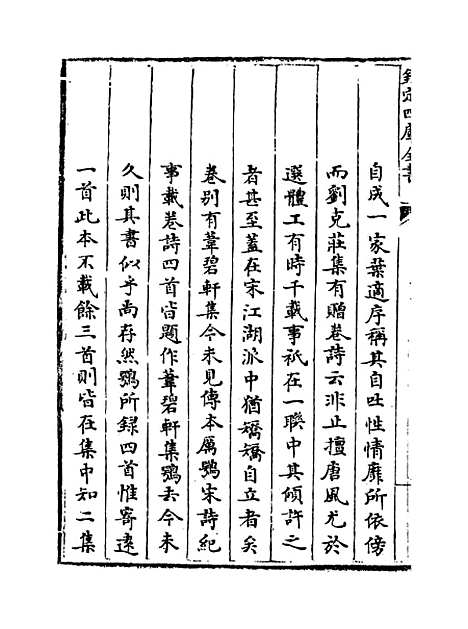 欽定四庫全書
自成一家葉適序稱其自吐性情靡所依傍
而劉克莊集有贈卷詩云非止擅唐風尤於
選體工有時千載事秪在一聯中其傾許之
者甚至蓋在宋江湖派中猶矯矯自立者矣
卷别有葦碧軒集今未見傳本厲鶚宋詩紀
事載卷詩四首皆題作葦碧軒集鶚去今未
久則其書似乎尚存然鶚所録四首惟寄遠
一首此本不載餘三首則皆在集中知二集